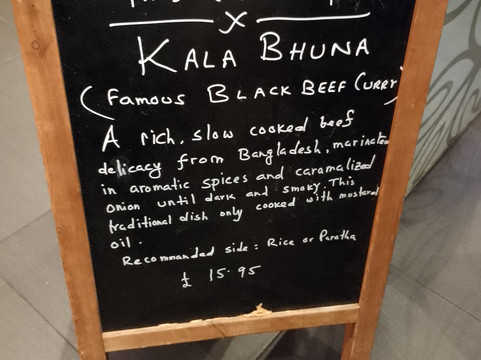 x
KALA BHUNA
(FAMOUS BLACK BEEF CURRY)
A rich, slow cooked beef
delicacy from Bangladesh, marinated
in aromatic spices and caramalized
onion until dark and smoky. This
traditional dish only cooked with mustard
oil.
Recommanded side: Rice or Paratha
£ 15.95